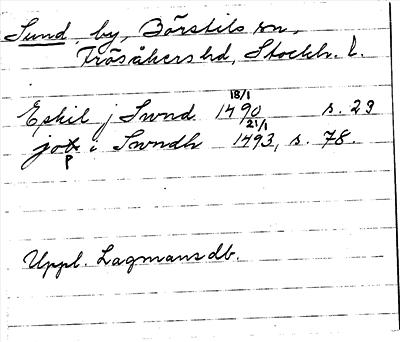 Sund, by, Börstils sn,
Frösåkers hd, Stockh. l.
Eskil j Swnd 18/1 1490 s. 29
jop i Swndh 21/1 1493, s. 78.
Uppl. Lagmansdb.